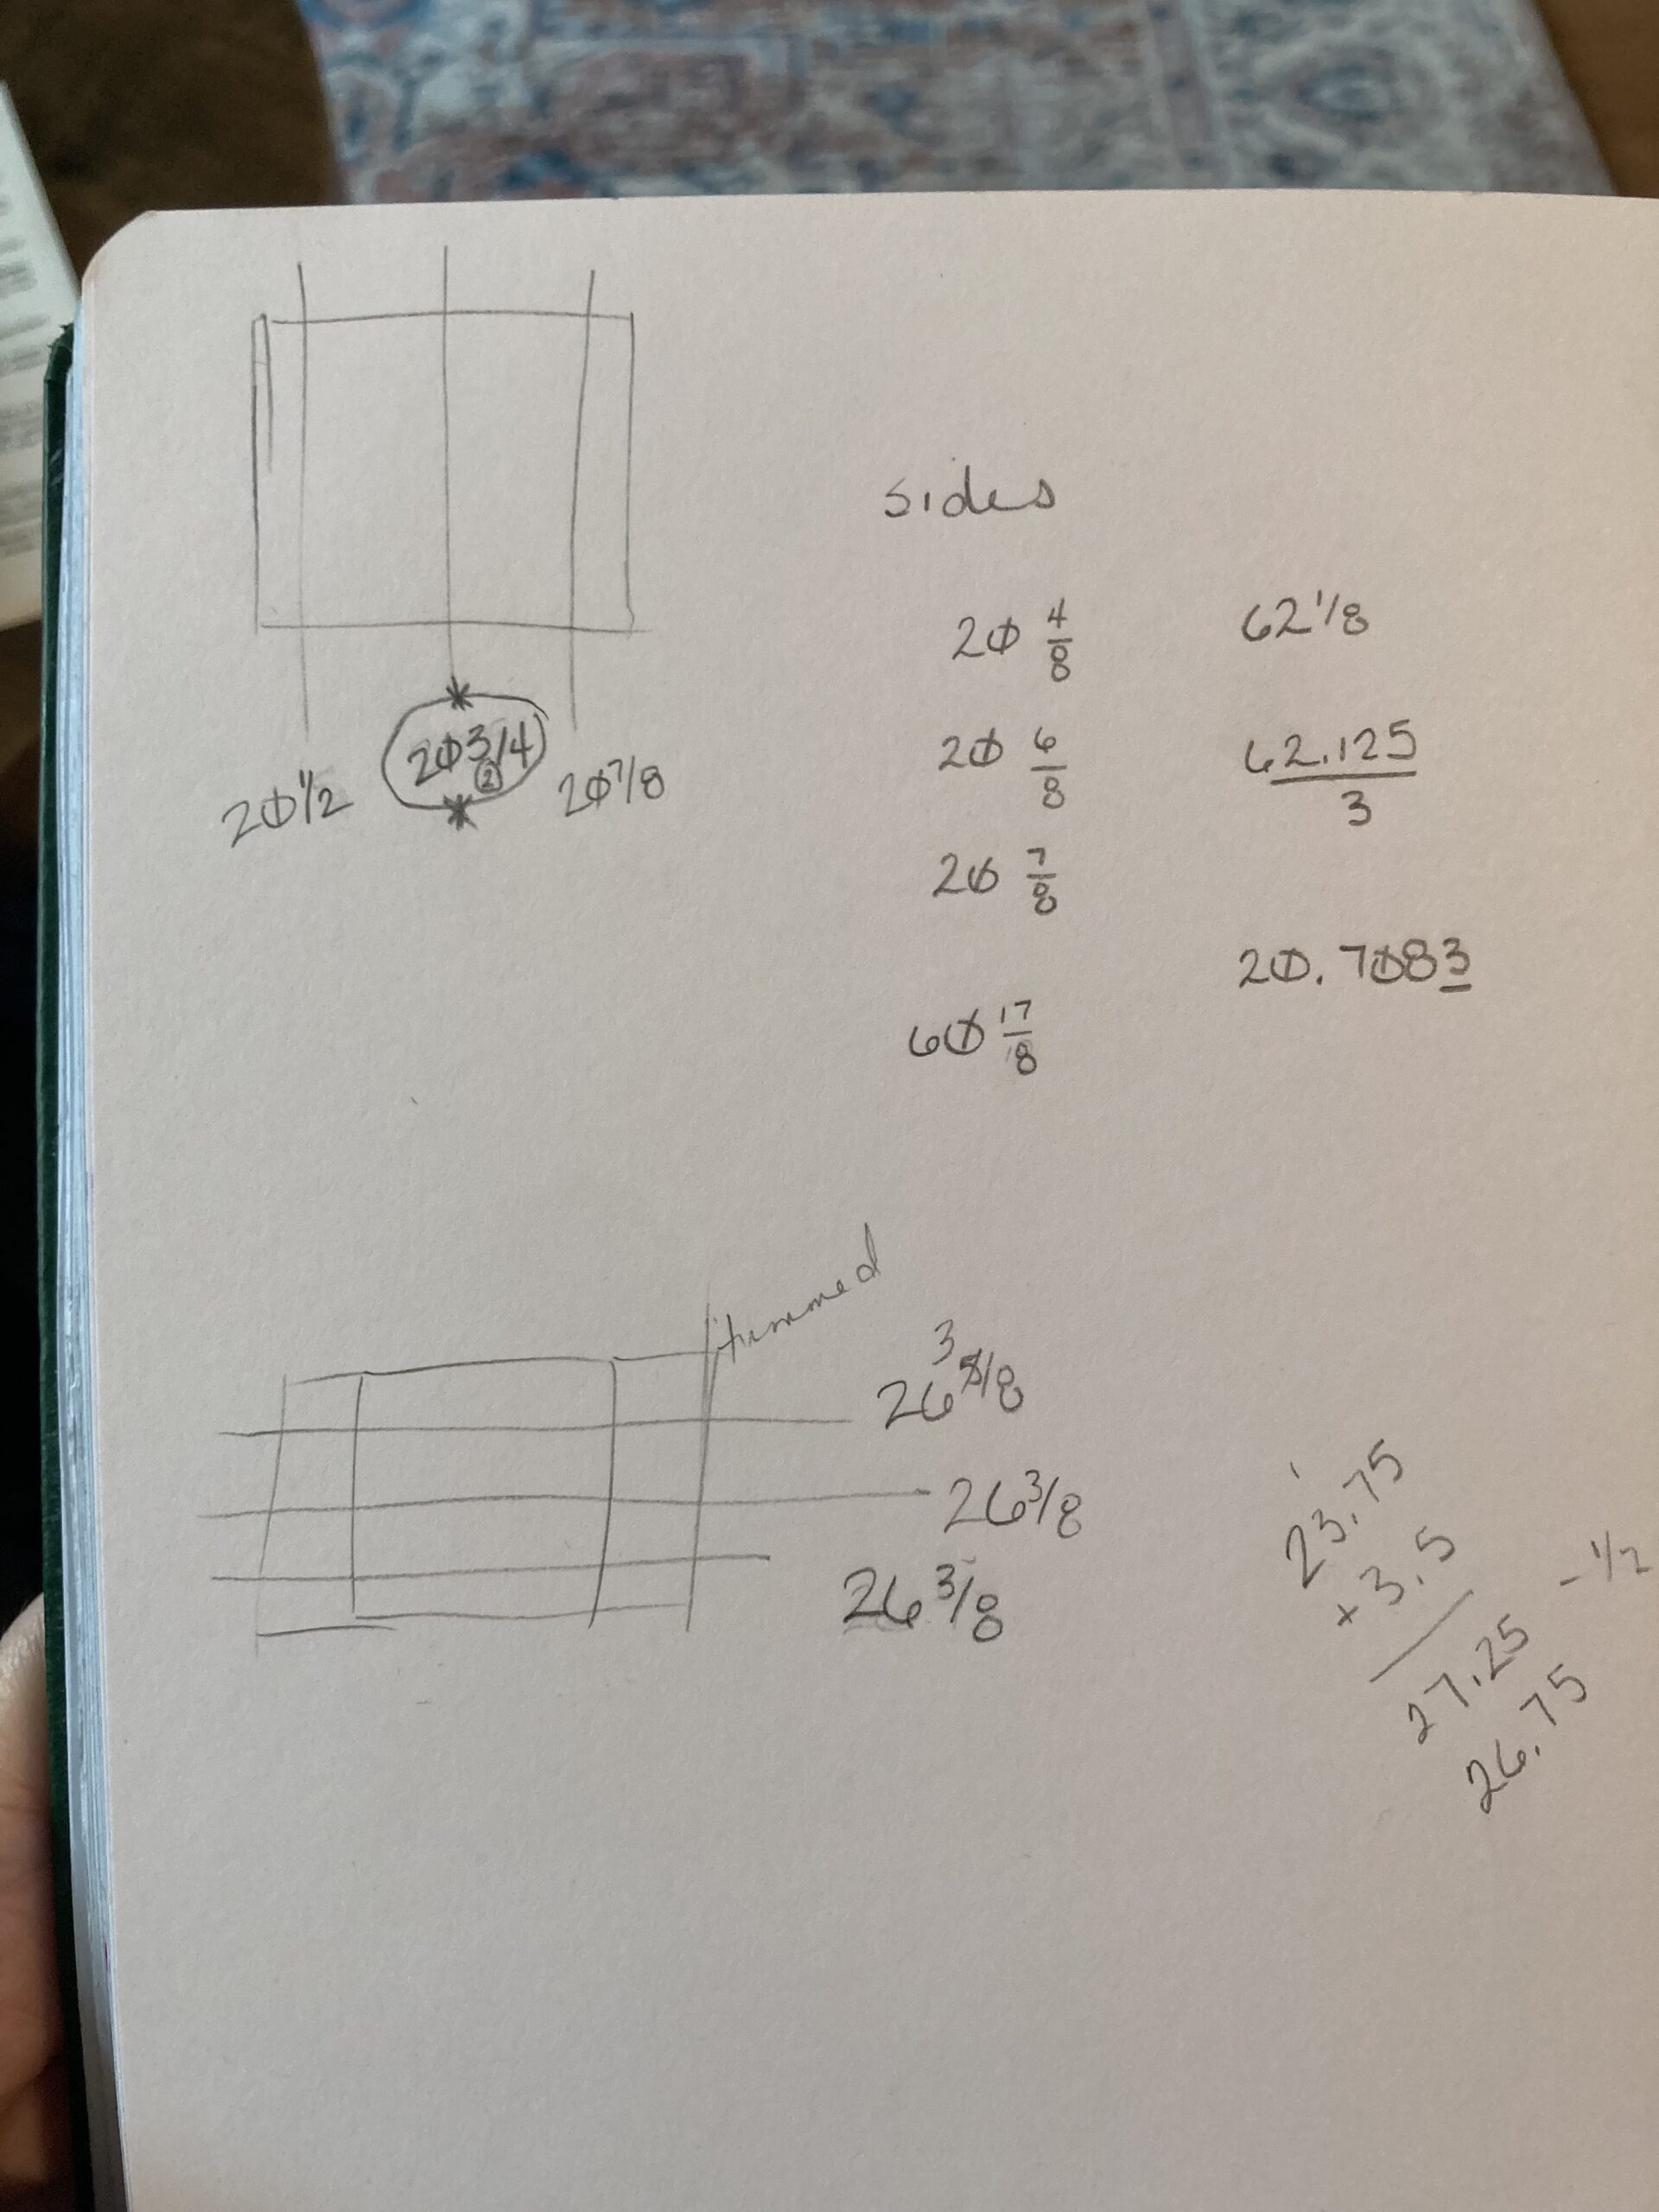 20 1/2
20 3/4
2
20 7/8
sides
20 4/8
20 6/8
20 7/8
60 17/8
62 1/8
62.125
3
20.7083
trimmed
3
26 5/8
26 3/8
26 3/8
1
23.75
+3.5
27.25 -1/2
26.75